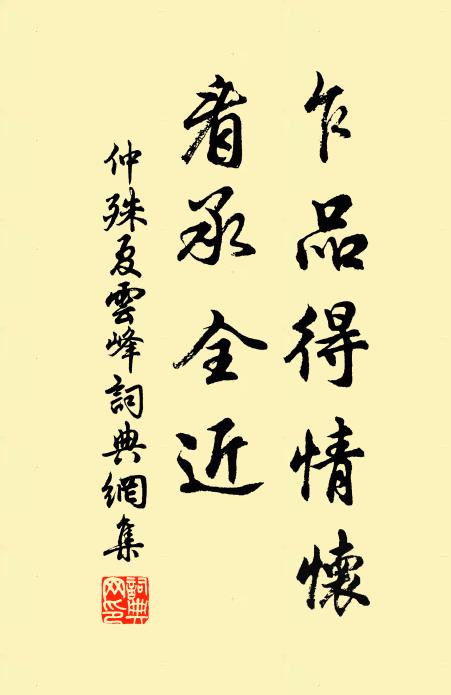 乍品得情懷
看承全近
仲殊夏雲峰詞典網集
詞典
网印